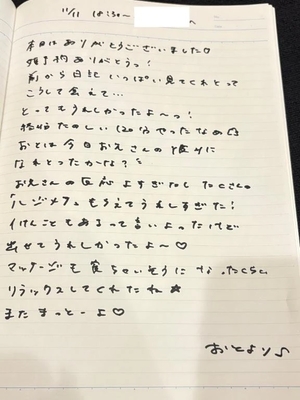 11/11 18:30〜 へ
本日はありがとうございました♡
予約ありがとうっ!
前から日記いっぱい見てくれとって
こうして会えて...
とってもうれしかったよ〜っ!
終始たのしい120分やったなぁ
おとは今日お兄さんの癒しに
なれとったかな?
お兄さんの反応よすぎたし たくさんの
もらえてうれしすぎた!
いけんこともあるって言いよったけど
出せてうれしかったよ〜♡
マッサージも寝ちゃいそうになったくらい
リラックスしてくれたね★
またまっとーよ♡
おとより♪